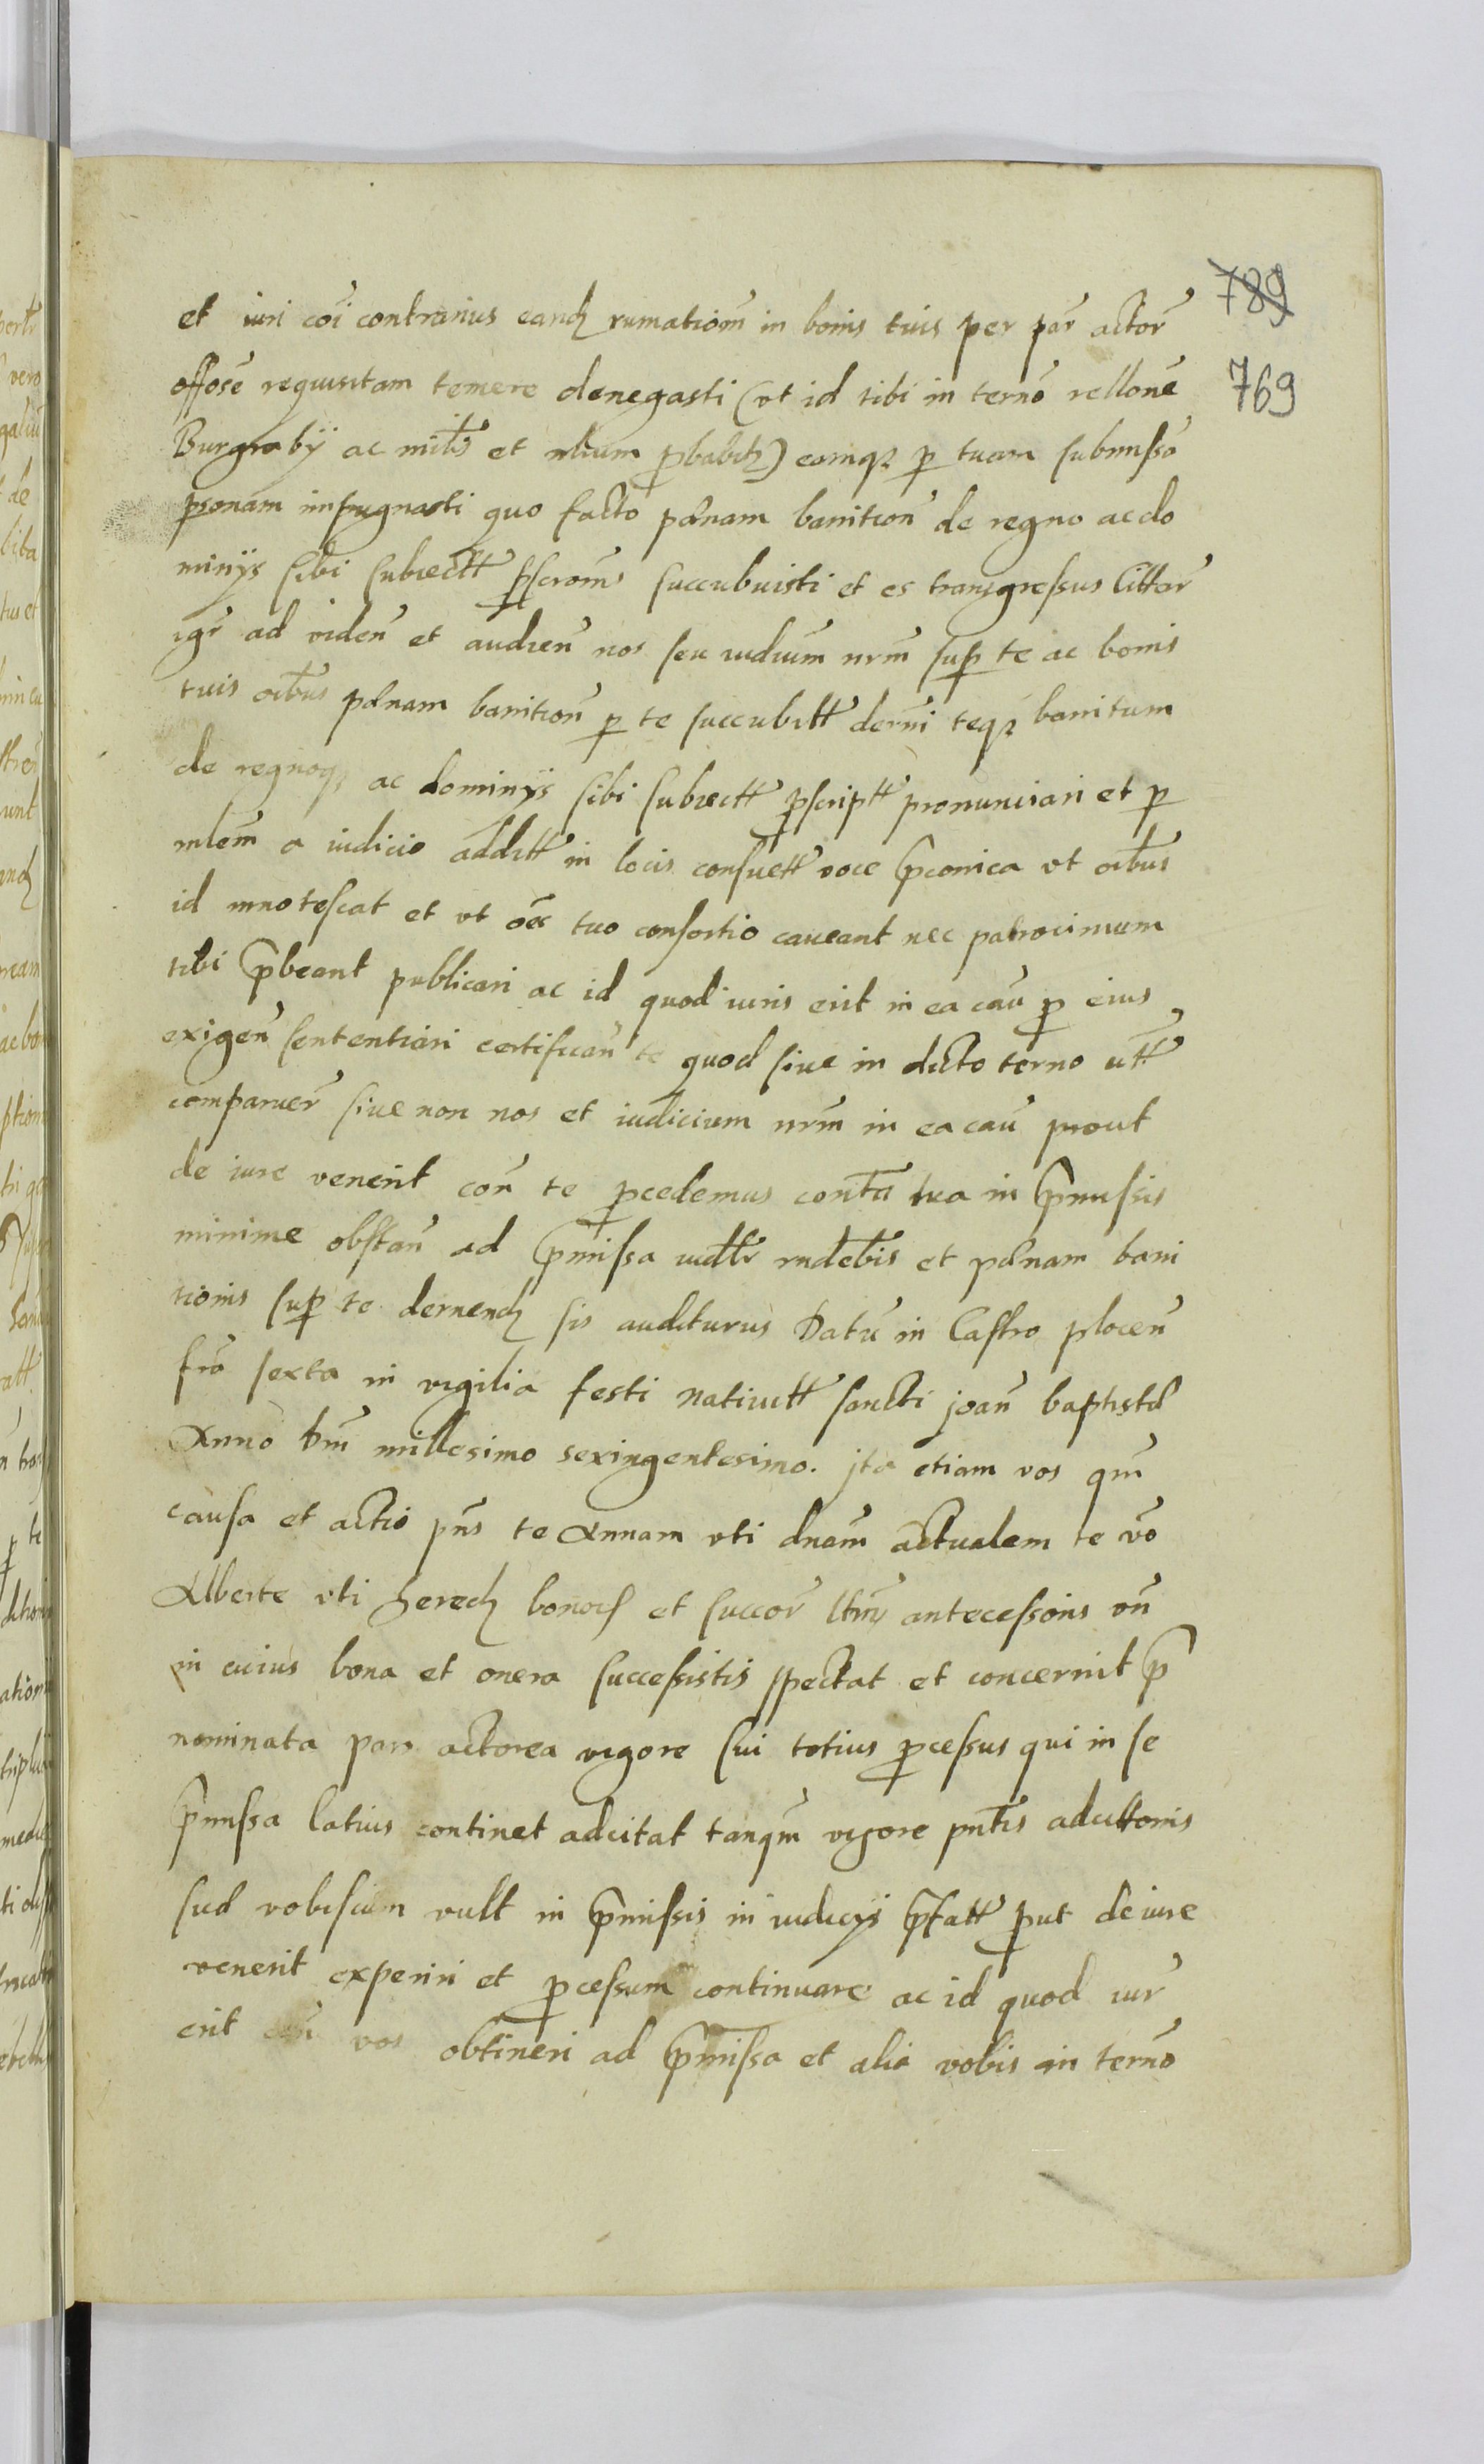 789
et iuri cōi contrarius eandꝫ rumationē in bonis tuis per par̃ actor̃
offōse requisitam temere denegasti (vt id tibi in termō rellonē
769
Burgrabÿ ac milīs et nlium ꝓbabitꝫ) eamqꝫ ꝑ tuam submissā
ꝑsonam impugnasti quo facto pœnam banition̄ de regno ac do
minÿs sibi subiectt ꝓscroms succubuisti et es transgressus Citter̃
igr̃ ad viden̄ et audien̄ nos seu iudium nr̃m suꝑ te ac bonis
tuis oībus pœnam banition̄ ꝑ te succubitt dernī teqꝫ banitum
de regnoqꝫ ac dominÿs sibi subiectt ꝓscriptt pronunciari et ꝑ
mlem̄ a iudicio additt in locis consuett voce p̄conica vt oībus
id innotescat et vt oēs tuo consortio caveant nec patrocinium
tibi p̄beant publicari ac id quod iuris erit in ea cau͂ ꝑ eius
exigen̄ sententiari certifican̄ te quod sive in dicto termo utt
comparuer̃ sive non nos et iudicium nr̃m in ea cau͂ prout
de iure venerit con̄ te ꝓcedemus contā tua in p̄missis
minime obstan̄ ad p̄missa iudlr̃ rndebis et pœnam bani
tionis suꝑ te dernendꝫ sis auditurus Datū in Castro plocen̄
frā sexta in vigilia festi nativitt sancti joan̄ baptistæ
Anno Dm̄ millesimo sexingentesimo. jta etiam vos qm̄
causa et actio pn̄s te Annam vti dnam̄ actualem te vō
Alberte vti heredꝫ bonorꝫ et succor̃ ltm̄ antecessoris vn̄
in cuius bona et onera successistis spectat et concernit p̄
nominata pars actorea vigore sui totius ꝓcessus qui in se
p̄missa latius continet adcitat tanqm̄ vigore pn̄tis adcittonis
suæ vobiscum vult in p̄missis in iudicÿs p̄fatt ꝓut de iure
venerit experiri et ꝓcessum continuare ac id quod iur̃
erit con̄ vos obtineri ad p̄missa et alia vobis in termō